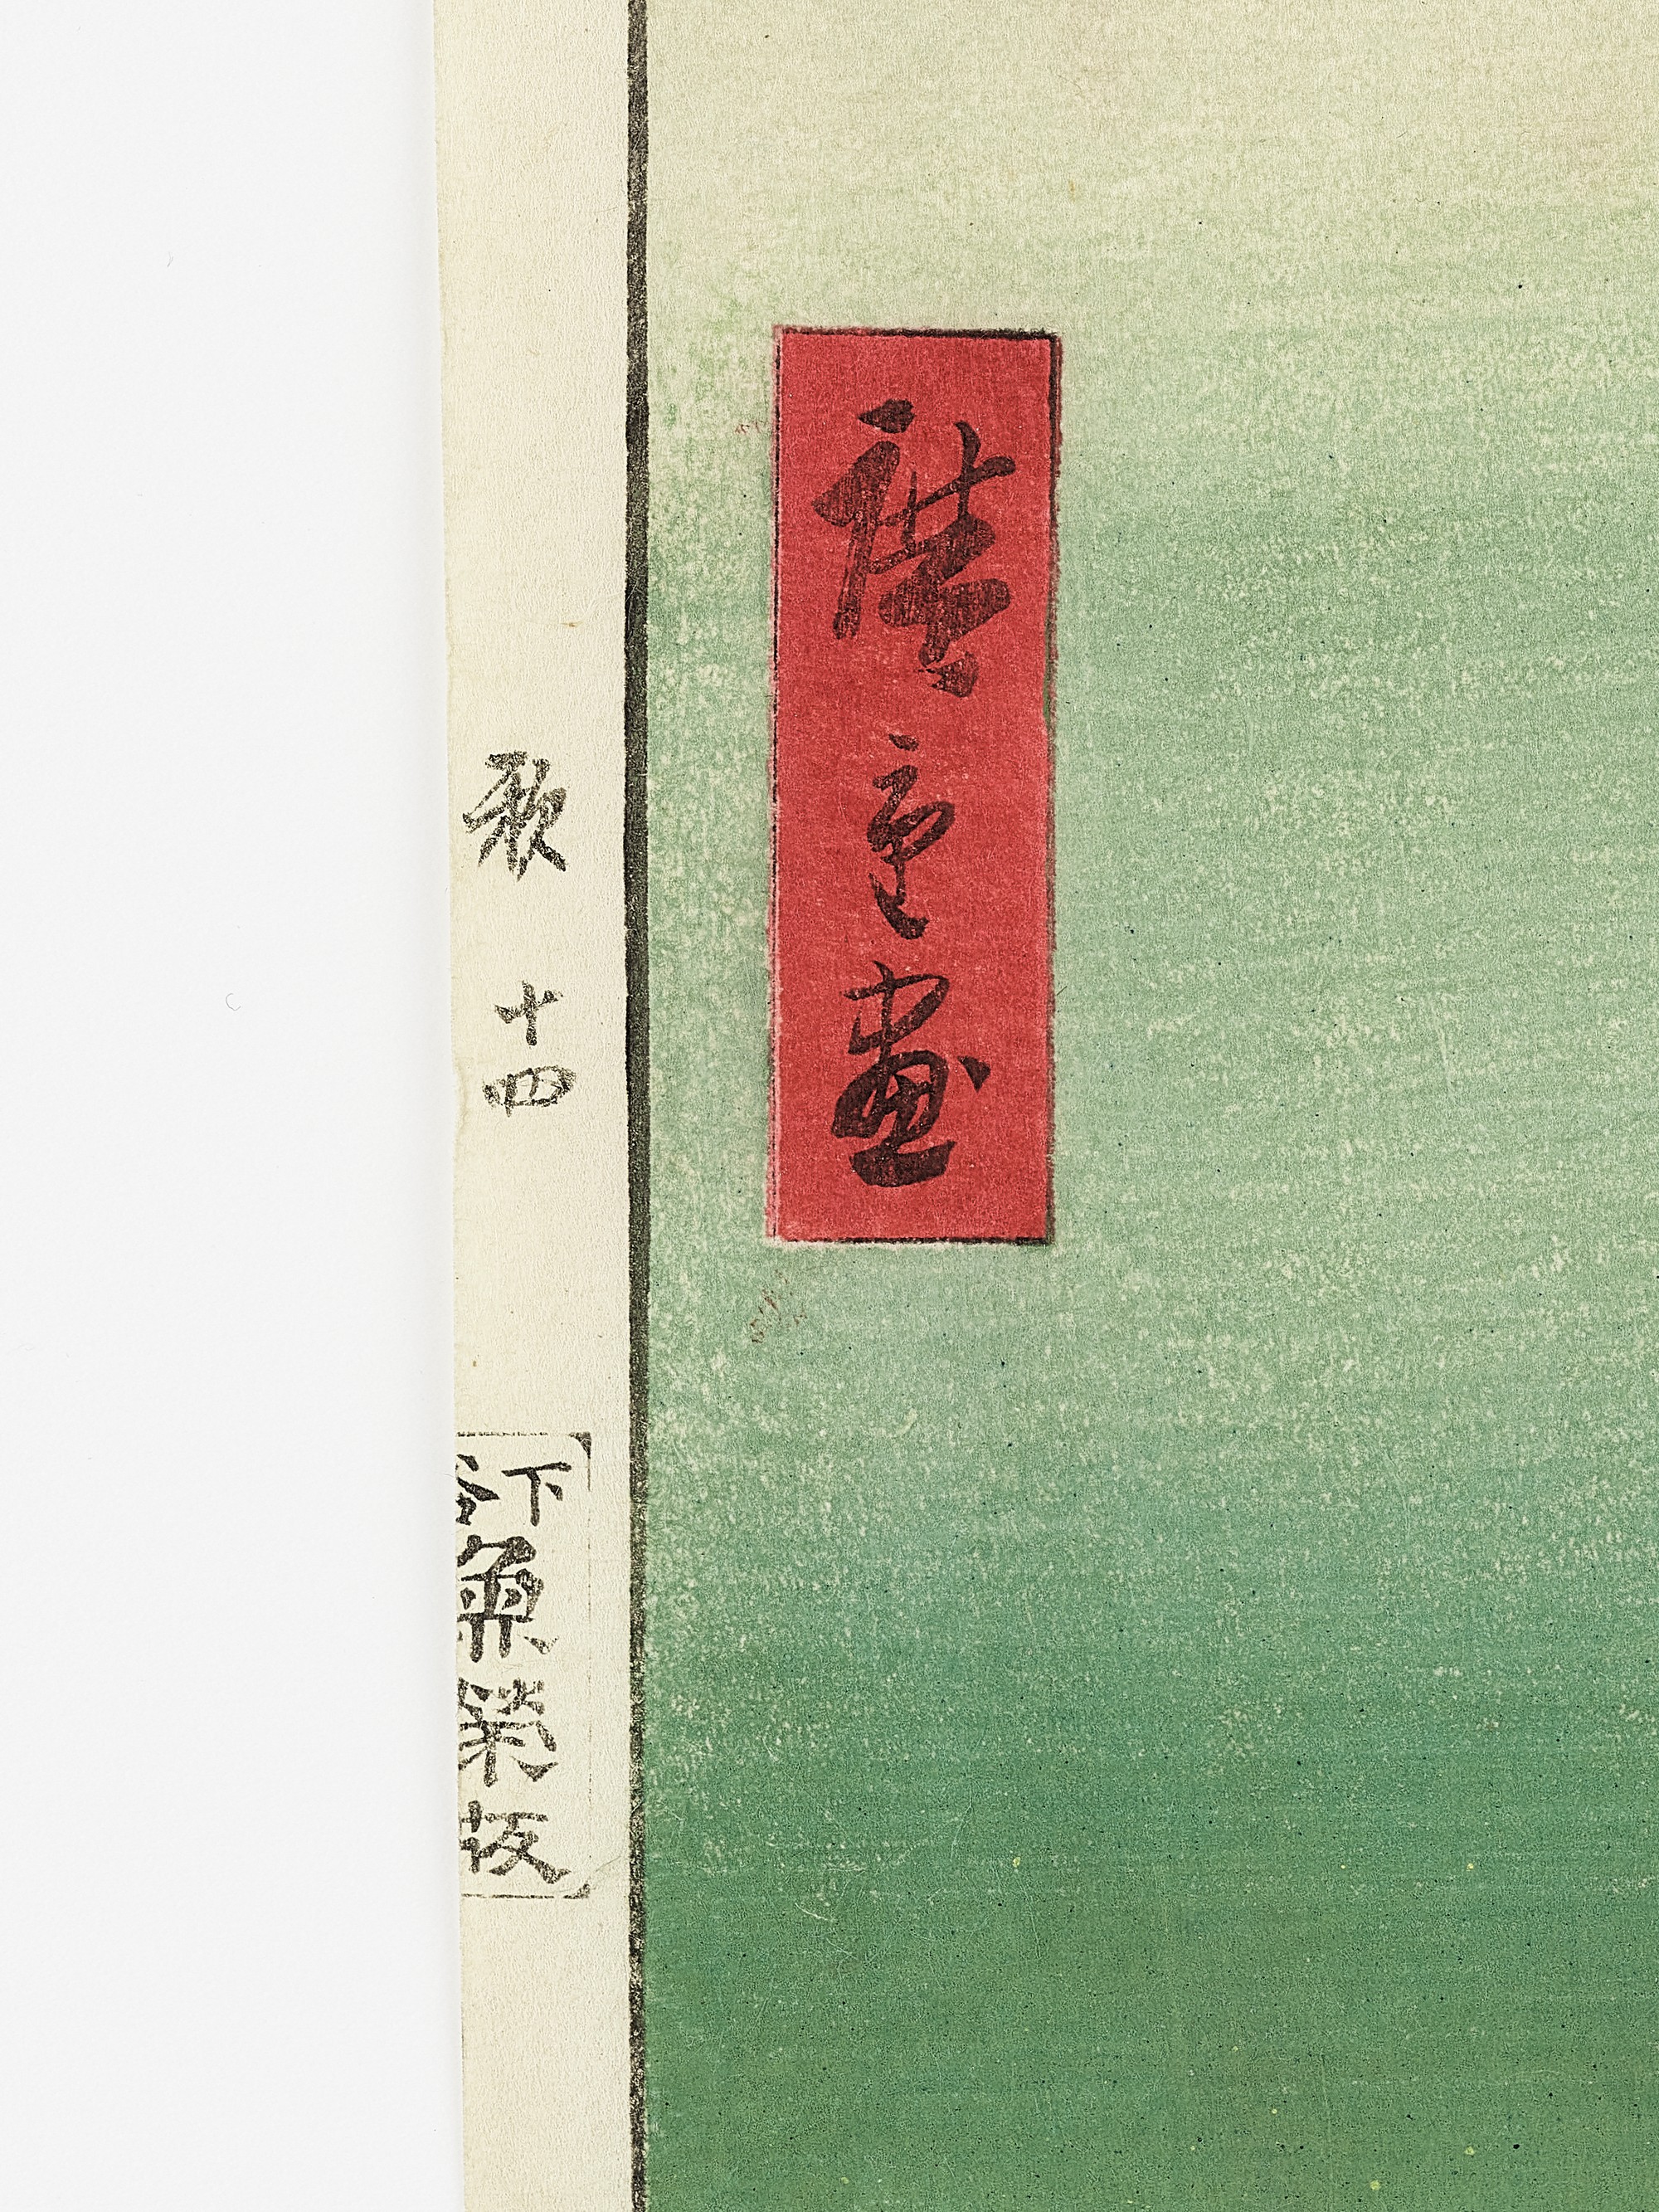 廣重画
歌
十四
下谷
魚栄板